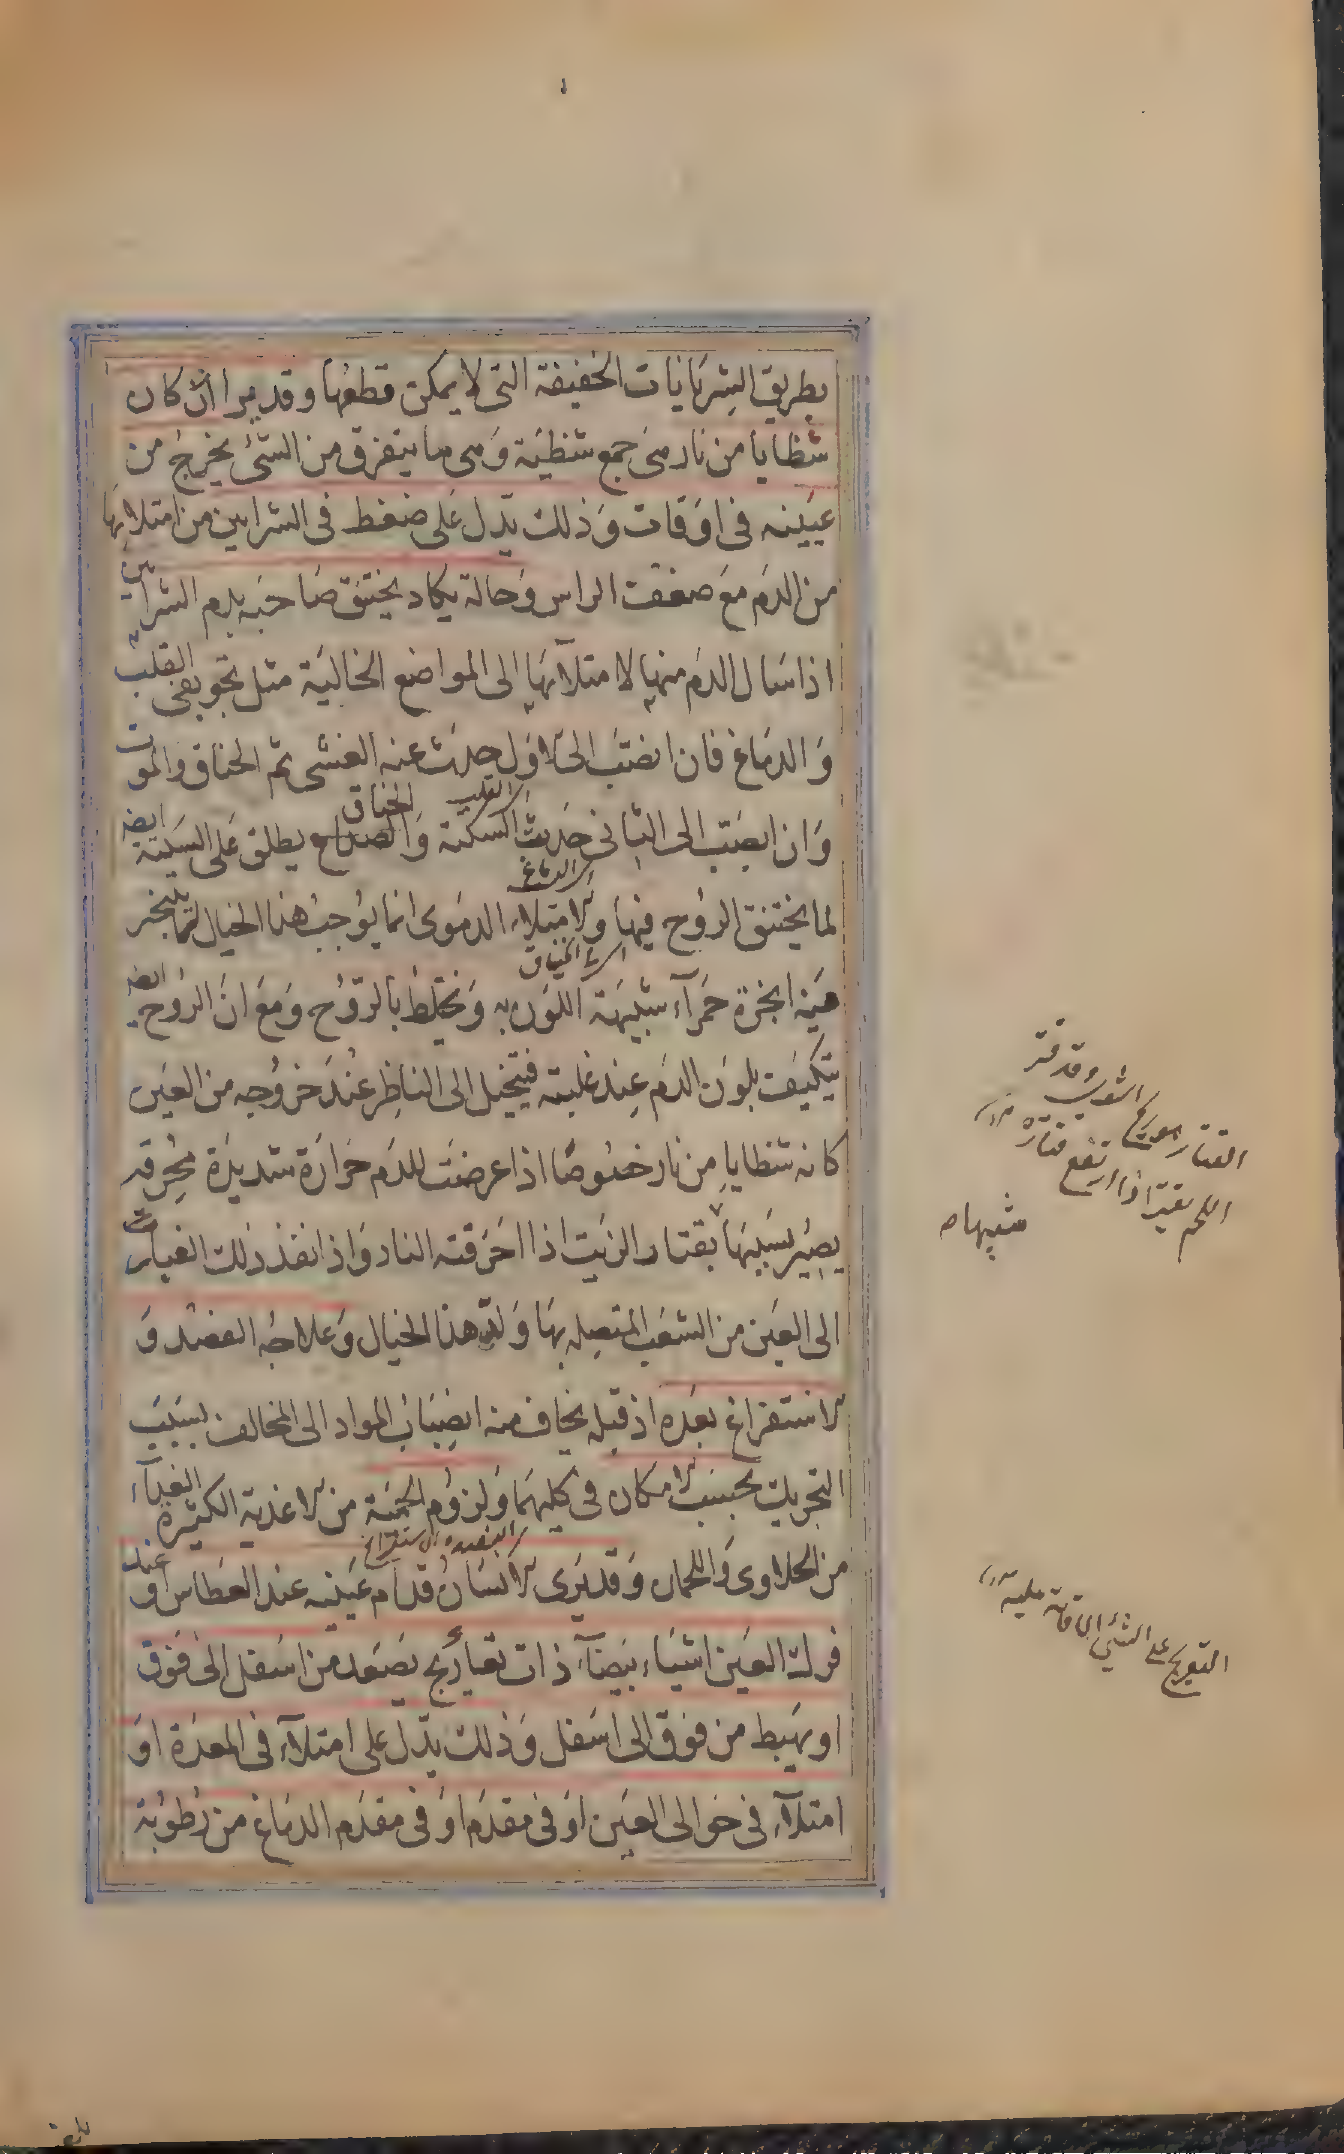 بطريق الشريانات الخفيفة التى لا يمكن قطعها وقد يرا كان
شظايا من نار هى جمع شظية وهى ما يتفرق من الشئ يخرج من
عينيه فى اوقات وذلك يدل على ضغط فى الشرايين من امتلائها
من الدم مع ضعف الراس وحالة يكاد يختنق صاحبه بدم الشرايين
اذا سال الدم منها لامتلائها الى المواضع الخالية مثل تجويفى القلب
والدماغ فان انصب الى الاول حدث عنه الغشى ثم الخناق والموت
اى القلب
وان انصب الى الثانى حدث السكتة والصداع يطلق على السكتة ايضا
الخناق
اى الدماغ
لما يختنق الروح فيها والامتلاء الدموى انما يوجب هذا الخيال لما يتبخر
اى الخناق
عنه ابخرة حمرآء شبيهة اللون به وتختلط بالروح ومع ان الروح ايضا
يتكيف بلون الدم عند غلبته فيتخيل الى الناظر عند خروجه من العين
كانه شظايا من نار خصوصا اذا عرضت للدم حرارة شديدة محرقة
يصير بسببها بقتار الزيت اذا احرقته النار واذا نفذ ذلك
الى العين من الشعب المتصلة بها ولد هذا الخيال وعلاجه الفصد و
الاستفراغ بعده اذ قبله يخاف منه انصباب المواد الى المخالف بسبب
التحريك بحسب الامكان فى كليهما ولزوم الحمية من الاغذية الكثيرة الغذآء
اى الفصد والاستفراغ
من الحلاوى واللحمان وقد يرى الانسان قدام عينيه عند العطاس او عند
فرك العين اشياء بيضآء ذات تعاريج يصعد من اسفل الى فوق
او يهبط من فوق الى اسفل وذلك يدل على امتلآء فى المعدة او
امتلآء فى حوالى العين او فى مقدم او فى مقدم الدماغ من رطوبة
القتار ريح الشوى وقد قتر
اللحم يقتر اذا ارتفع قتاره
شبيها
التعريج على الشئ الاقامة عليه